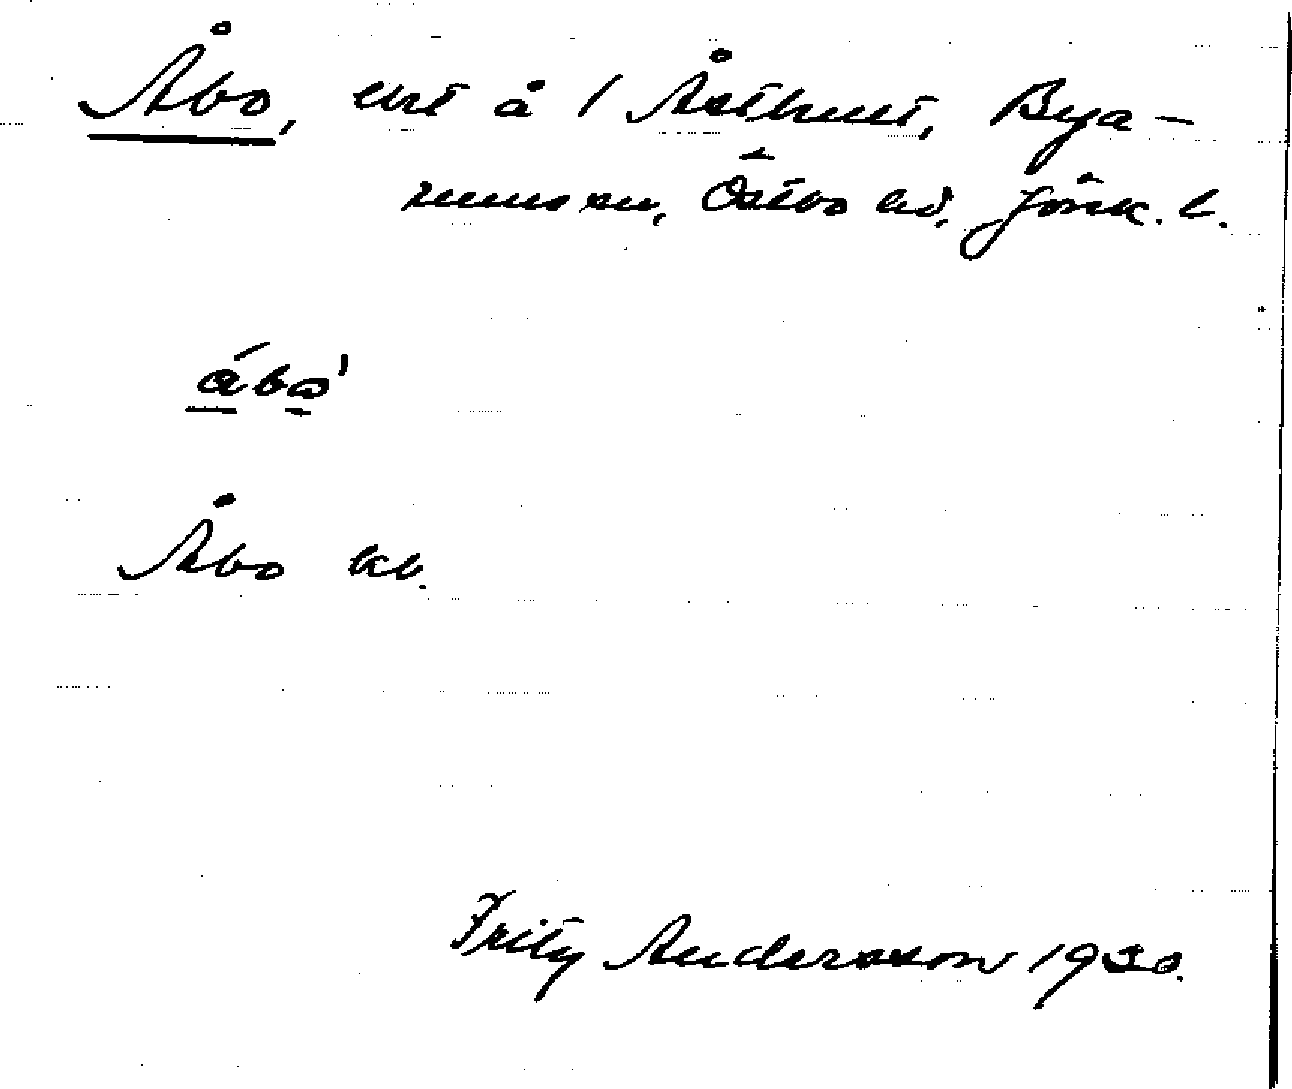 Åbo, utt å 1 Åsthult, Bya-
rums sn, Östbo hd, Jönk. l.
ábo'
Åbo kb.
Fritz Andersson 1930.